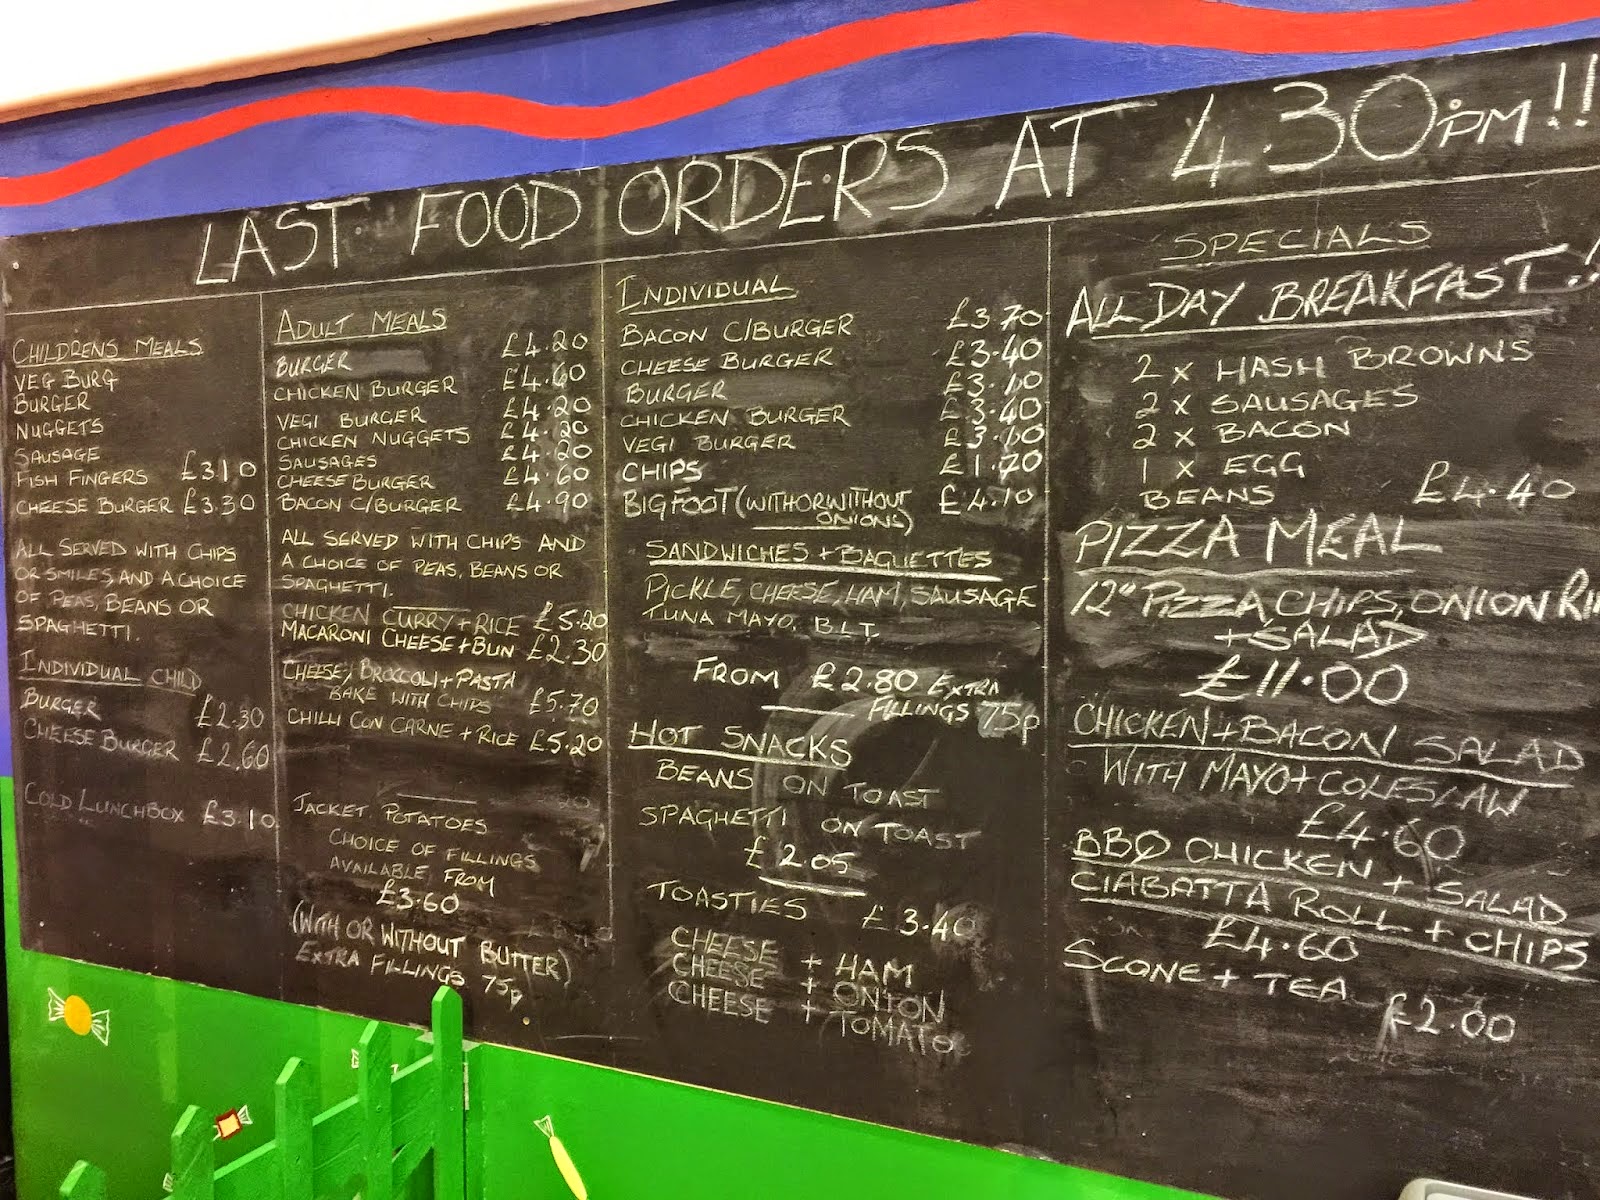 LAST FOOD ORDERS AT 4.30PM!!
CHILDRENS MEALS
VEG BURG
BURGER
NUGGETS
SAUSAGE
FISH FINGERS £3.10
CHEESE BURGER £3.30
ALL SERVED WITH CHIPS
OR SMILES, AND A CHOICE
OF PEAS, BEANS OR
SPAGHETTI.
INDIVIDUAL CHILD
BURGER £2.30
CHEESE BURGER £2.60
COLD LUNCHBOX £3.10
ADULT MEALS
BURGER £4.20
CHICKEN BURGER £4.60
VEGI BURGER £4.20
CHICKEN NUGGETS £4.20
SAUSAGES £4.20
CHEESE BURGER £4.60
BACON C/BURGER £4.90
ALL SERVED WITH CHIPS AND
A CHOICE OF PEAS, BEANS OR
SPAGHETTI.
CHICKEN CURRY + RICE £5.20
MACARONI CHEESE + BUN £2.30
CHEESE, BROCCOLI + PASTA
BAKE WITH CHIPS £5.70
CHILLI CON CARNE + RICE £5.20
JACKET POTATOES
CHOICE OF FILLINGS
AVAILABLE FROM
£3.60
(WITH OR WITHOUT BUTTER)
EXTRA FILLINGS 75p
INDIVIDUAL
BACON C/BURGER £3.70
CHEESE BURGER £3.40
BURGER £3.10
CHICKEN BURGER £3.40
VEGI BURGER £3.10
CHIPS £1.70
BIGFOOT (WITH OR WITHOUT £4.10
ONIONS)
SANDWICHES + BAGUETTES
PICKLE, CHEESE, HAM, SAUSAGE
TUNA MAYO, B.L.T.
FROM £2.80 EXTRA
FILLINGS 75p
HOT SNACKS
BEANS ON TOAST
SPAGHETTI ON TOAST
£2.05
TOASTIES £3.40
CHEESE + HAM
CHEESE + ONION
CHEESE + TOMATO
SPECIALS
ALL DAY BREAKFAST!
2 x HASH BROWNS
2 x SAUSAGES
2 x BACON
1 x EGG
BEANS £4.40
PIZZA MEAL
12" PIZZA, CHIPS, ONION RI
+ SALAD
£11.00
CHICKEN + BACON SALAD
WITH MAYO + COLESLAW
£4.60
BBQ CHICKEN + SALAD
CIABATTA ROLL + CHIPS
£4.60
SCONE + TEA
£2.00